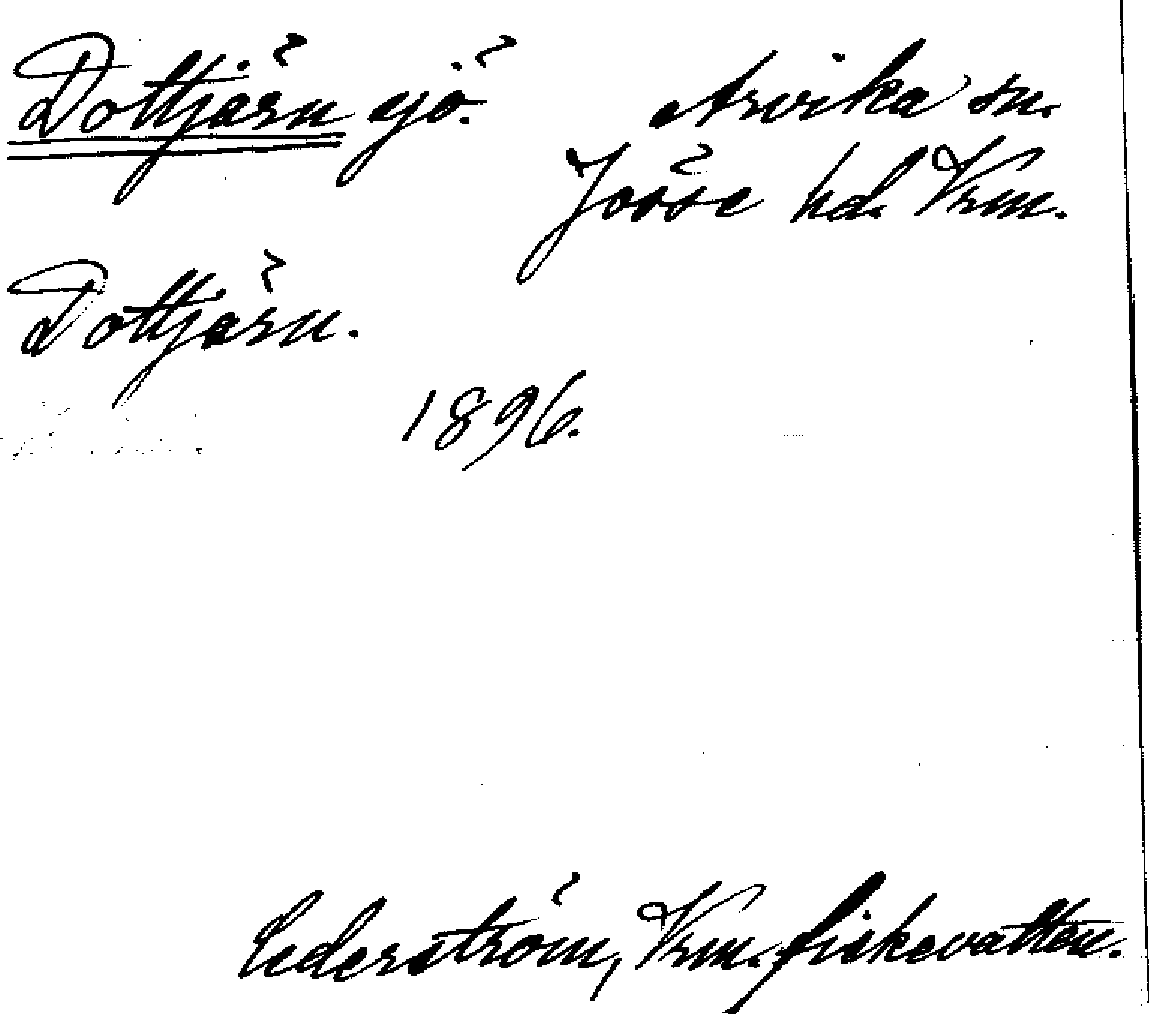 Dottjärn sjö. Arvika sn.
Jösse hd. Vrm.
Dottjärn.
1896.
Cederström, Vrm. fiskevatten.